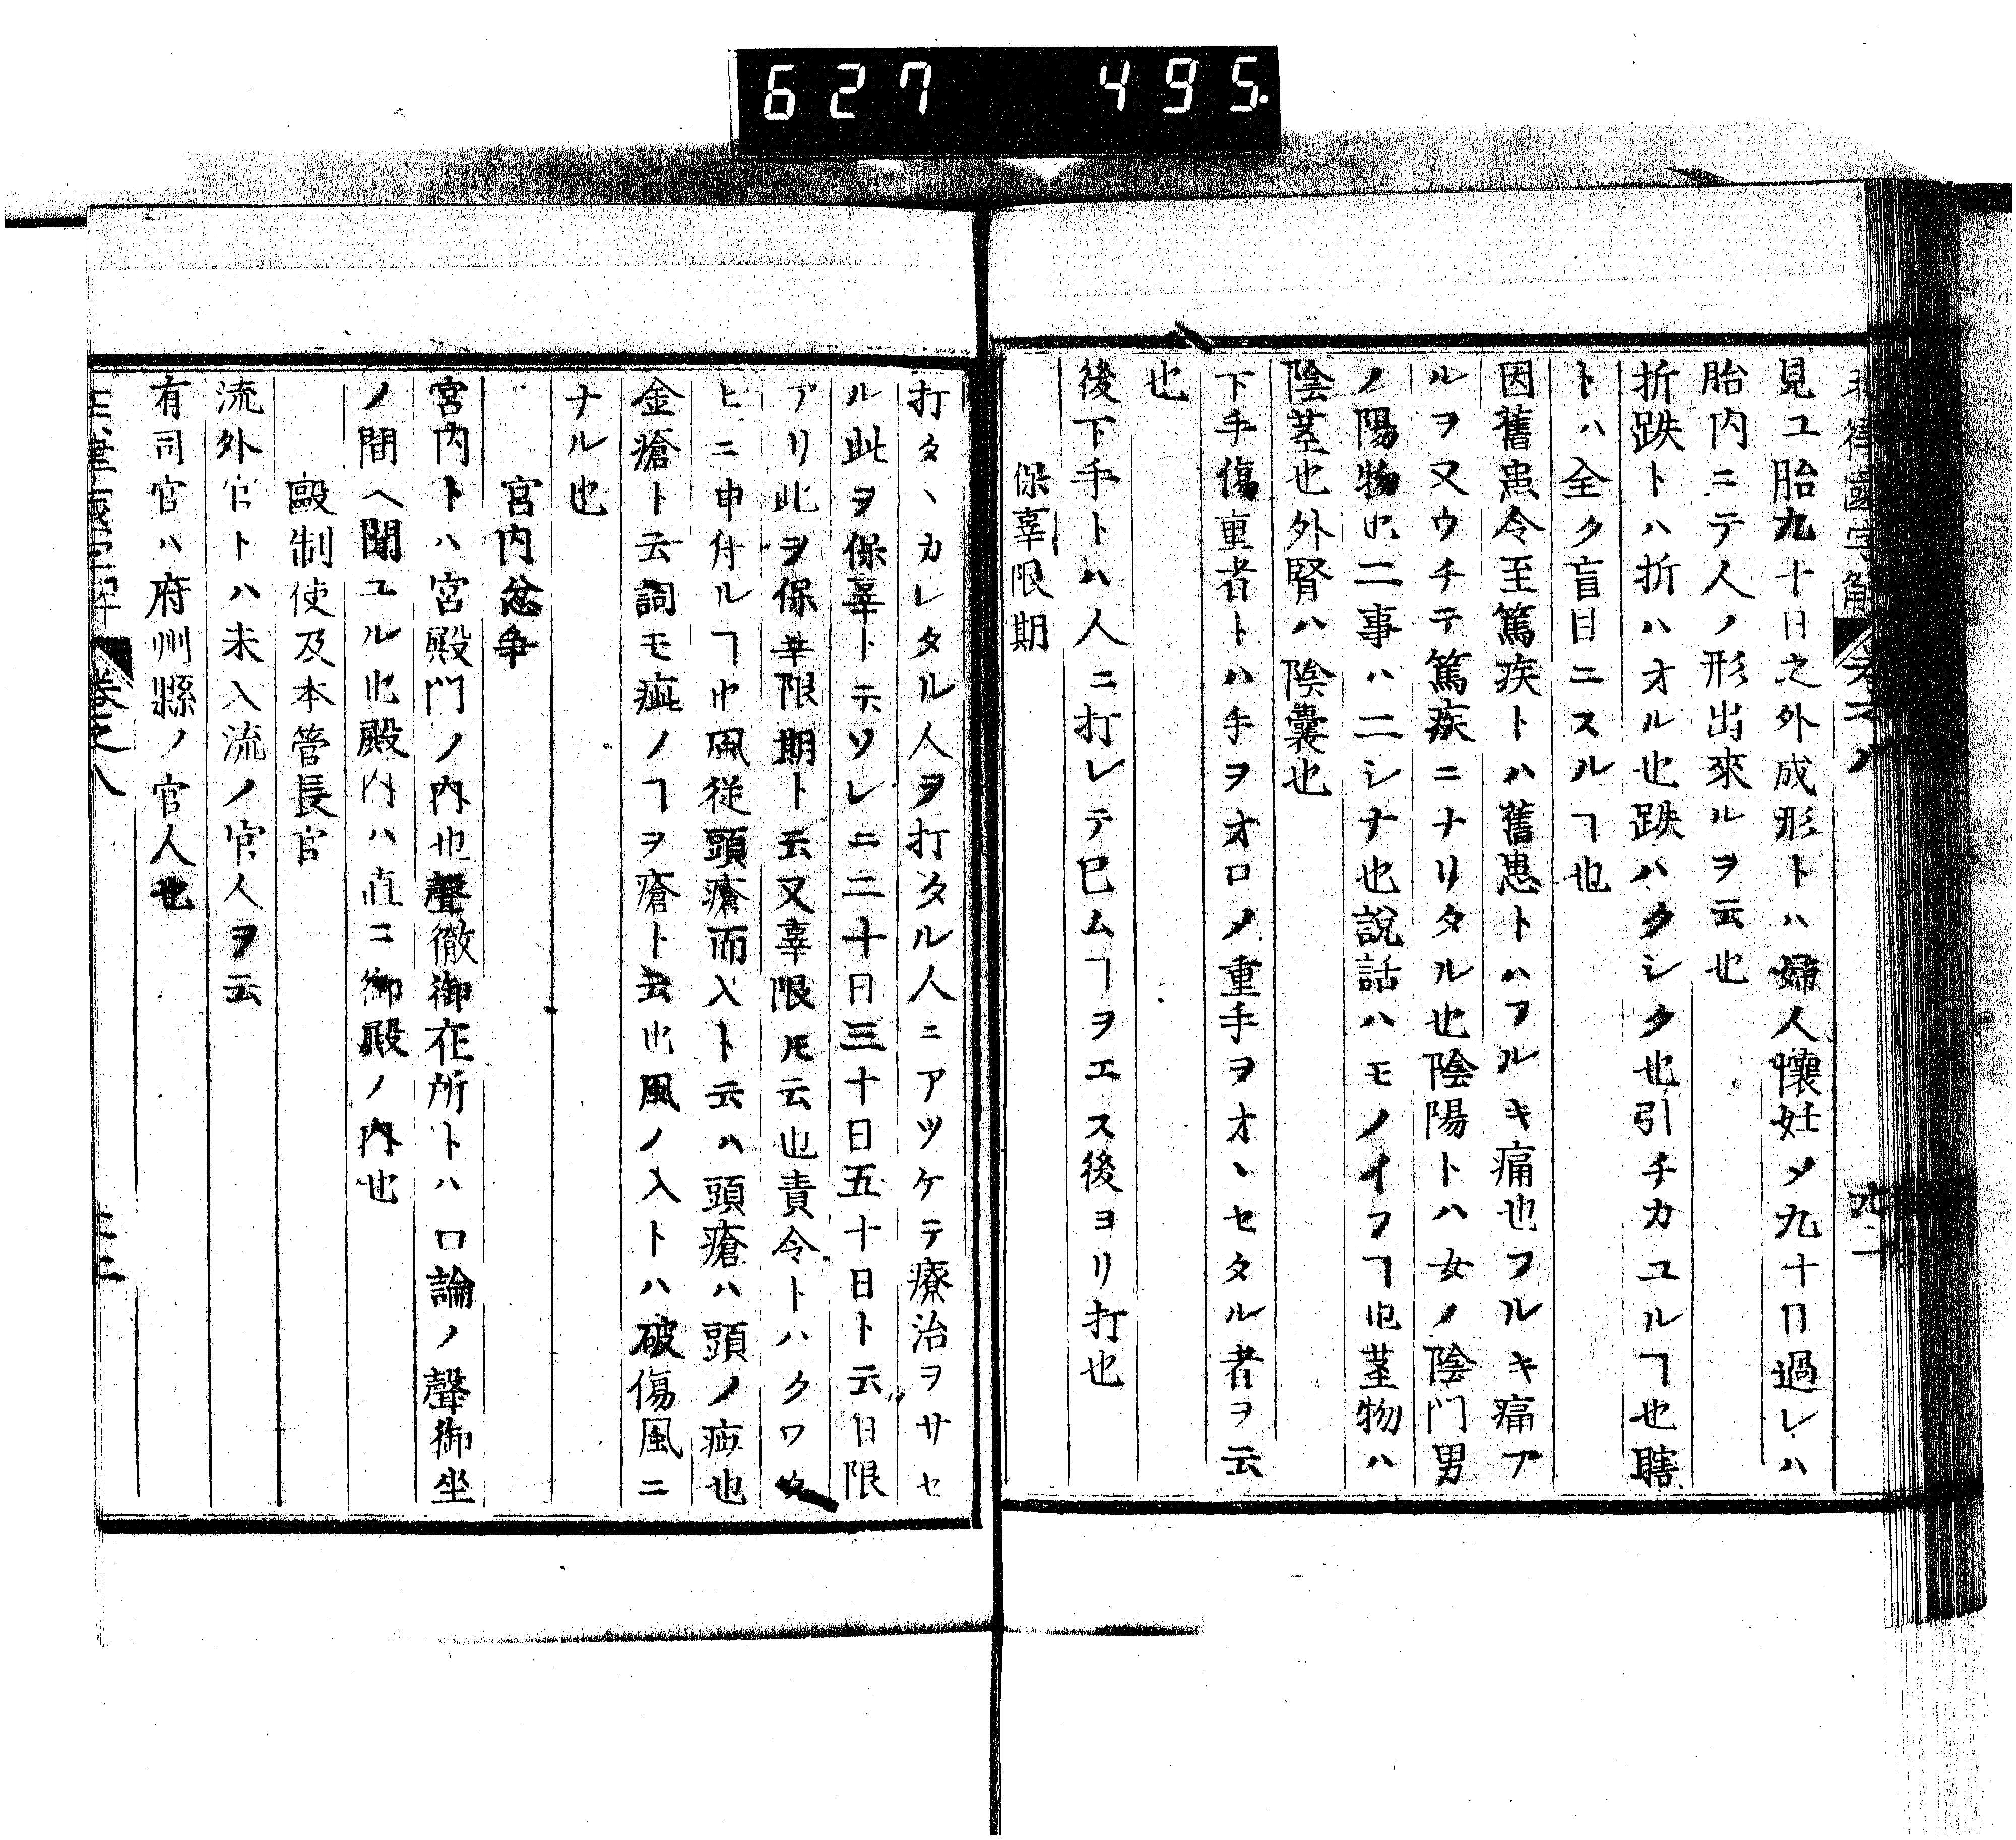 627 495.
見ユ胎九十日之外成形トハ婦人懐妊〆九十日過レハ
胎内ニテ人ノ形出來ルヲ云也
折跌トハ折ハオル也跌ハクシク也引チカユルヿ也瞎
トハ全ク盲目ニスルヿ也
因舊患令至篤疾トハ舊患トハフルキ痛也フルキ痛ア
ルヲ又ウチテ篤疾ニナリタル也陰陽トハ女ノ陰門男
ノ陽物也二事ハ二シナ也説話ハモノイフヿ也莖物ハ
陰莖也外腎ハ陰嚢也
下手傷重者トハ手ヲオロ〆重手ヲオヽセタル者ヲ云
也
後下手トハ人ニ打レテ巳ムヿヲエス後ヨリ打也
保辜限期
打タヽカレタル人ヲ打タル人ニアツケテ療治ヲサセ
ル此ヲ保辜ト云ソレニ二十日三十日五十日ト云日限
アリ此ヲ保辜限期ト云又辜限𪜈云也責令トハクワタ
ヒニ申付ルヿ也風従頭瘡而入ト云ハ頭瘡ハ頭ノ疵也
金瘡ト云詞モ疵ノヿヲ瘡ト云也風ノ入トハ破傷風ニ
ナル也
宮内忿争
宮内トハ宮殿門ノ内也聲徹御在所トハ口論ノ聲御坐
ノ間ヘ聞ユル也殿内ハ直ニ御殿ノ内也
毆制使及本管長官
流外官トハ未入流ノ官人ヲ云
有司官ハ府州縣ノ官人也
卷之八